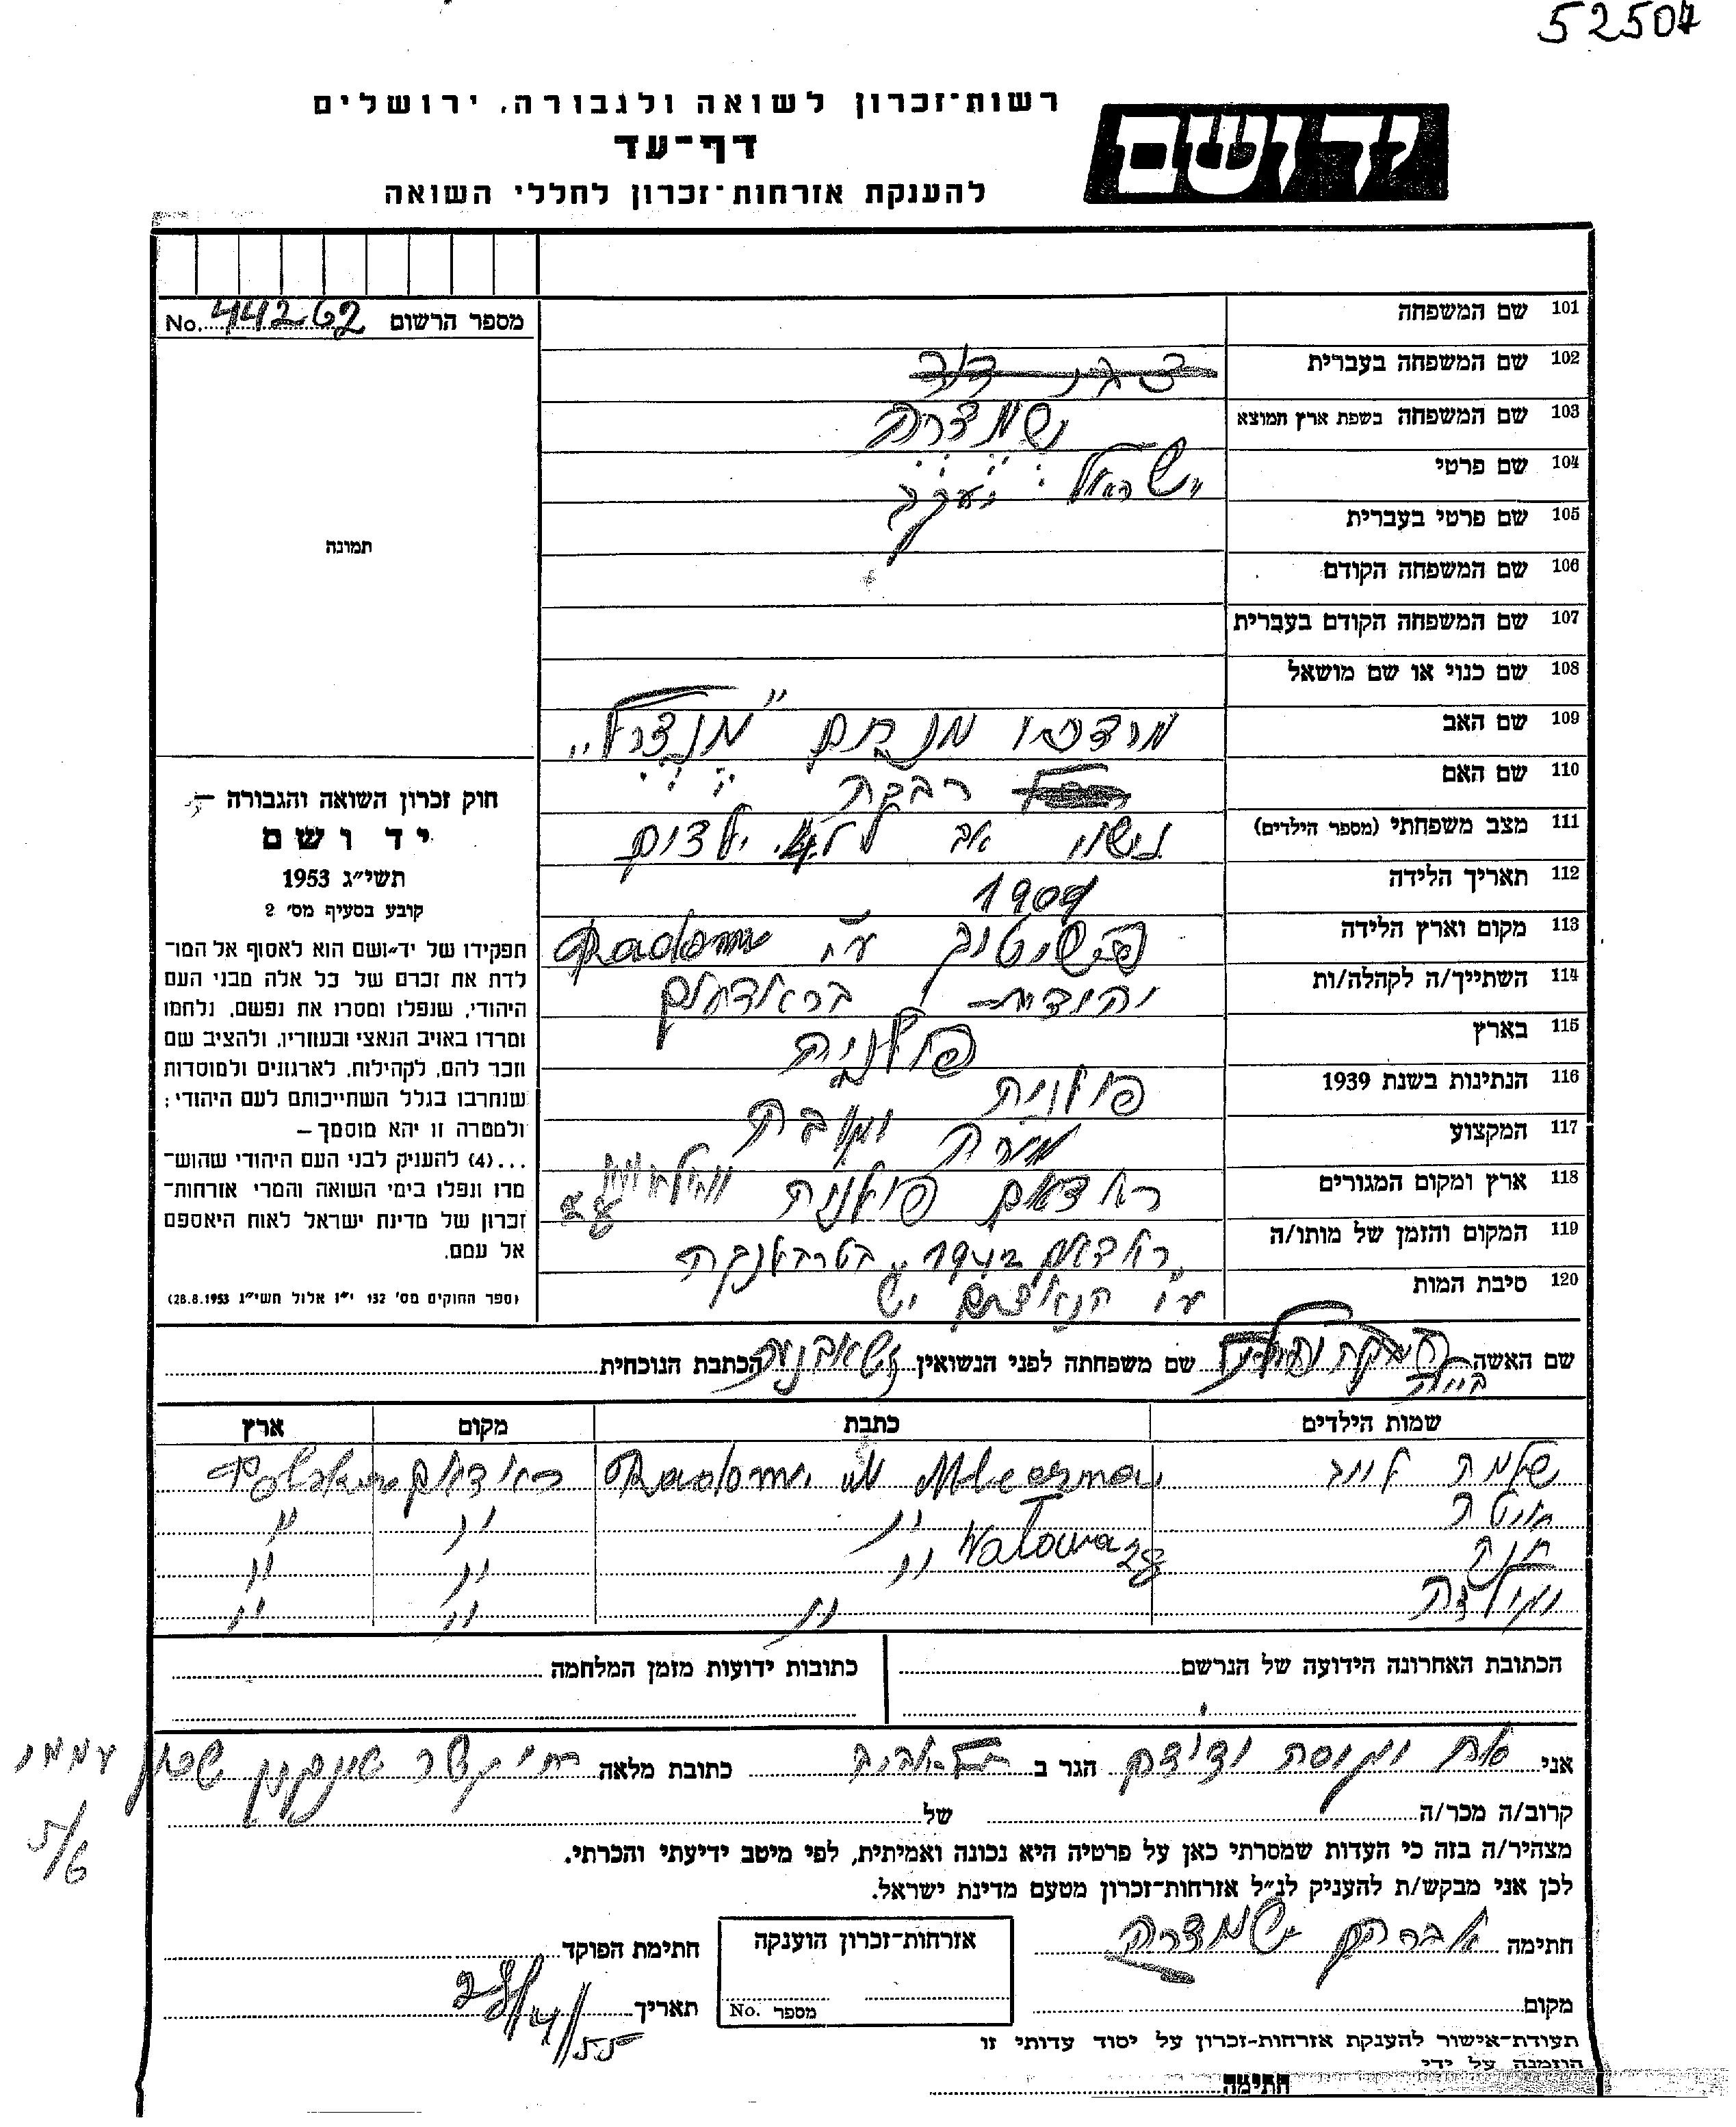 52504
רשות־זכרון לשואה ולגבורה, ירושלים
דף־עד
להענקת אזרחות־זכרון לחללי השואה
יד ושם
מספר הרשום No. 44262
תמונה
101 שם המשפחה
102 שם המשפחה בעברית
103 שם המשפחה בשפת ארץ המוצא
104 שם פרטי ישראל
105 שם פרטי בעברית יעקב
106 שם המשפחה הקודם
107 שם המשפחה הקודם בעברית
108 שם כנוי או שם מושאל
109 שם האב מרדכי מנחם
110 שם האם רבקה
111 מצב משפחתי (מספר הילדים) נישוי אב ל 4 ילדים
112 תאריך הלידה 1904
113 מקום וארץ הלידה ע"י Radom
114 השתייך/ה לקהלה/ות יהודית בראדאם
115 בארץ פולניה
116 הנתינות בשנת 1939 פולנית
117 המקצוע
118 ארץ ומקום המגורים ראדאם פולניה
119 המקום והזמן של מותו/ה ראדאם 1942 בטרבלנקה
120 סיבת המות ע"י הנאצים
חוק זכרון השואה והגבורה —
יד ושם
תשי״ג 1953
קובע בסעיף מס׳ 2
תפקידו של יד־ושם הוא לאסוף אל המו־
לדת את זכרם של כל אלה מבני העם
היהודי, שנפלו ומסרו את נפשם, נלחמו
ומרדו באויב הנאצי ובעוזריו, ולהציב שם
וזכר להם, לקהילות, לארגונים ולמוסדות
שנחרבו בגלל השתייכותם לעם היהודי;
ולמטרה זו יהא מוסמך —
...(4) להענק לבני העם היהודי שהוש־
מדו ונפלו בימי השואה והמרי אזרחות־
זכרון של מדינת ישראל לאות היאספם
אל עמם.
(ספר החוקים מס׳ 132 י״ז אלול תשי״ג 28.8.1953)
שם האשה שם משפחתה לפני הנשואין הכתבת הנוכחית
שמות הילדים כתבת מקום ארץ
שלמה לייב Radom ראדאם
חנה Wałowa 28
הכתובת האחרונה הידועה של הנרשם
כתובות ידועות מזמן המלחמה
אני הגר ב תל־אביב כתובת מלאה שכון עממי
5/6
קרוב/ה מכר/ה של
מצהיר/ה בזה כי העדות שמסרתי כאן על פרטיה היא נכונה ואמיתית, לפי מיטב ידיעתי והכרתי.
לכן אני מבקש/ת להעניק לנ״ל אזרחות־זכרון מטעם מדינת ישראל.
חתימה אברהם
מקום
אזרחות־זכרון הוענקה
מספר No.
חתימת הפוקד
תאריך 28/4/55
תעודת־אישור להענקת אזרחות־זכרון על יסוד עדותי זו
הוזמנה על ידי
חתימה